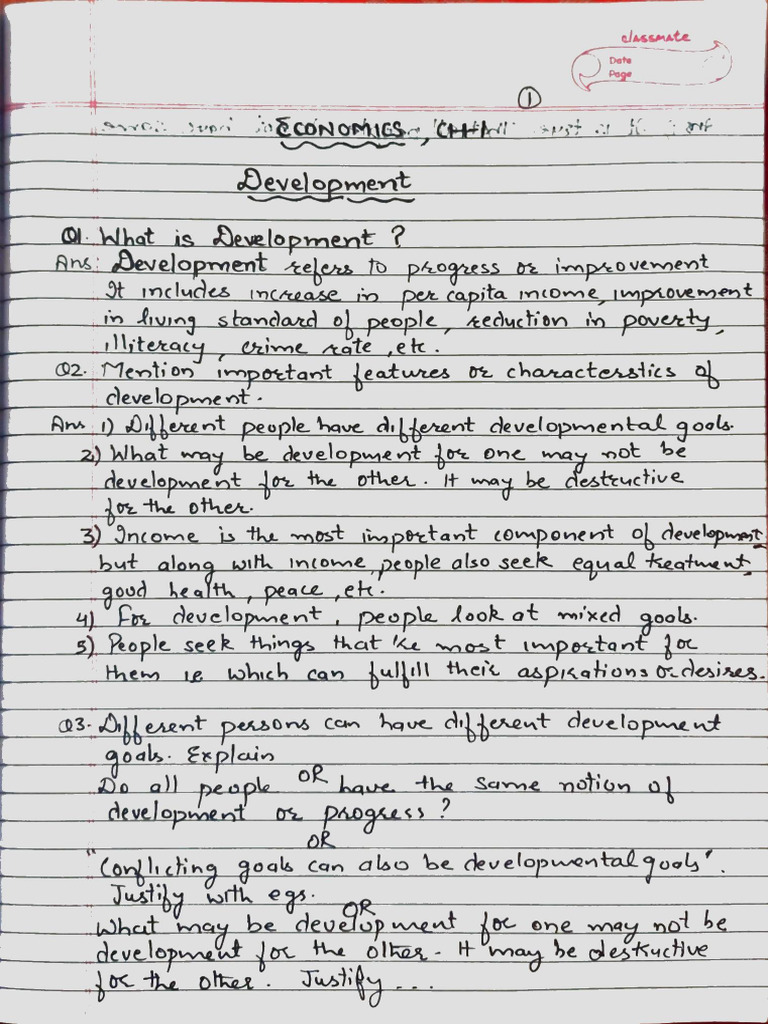 classmate
Date
Page
①
ECONOMICS, CH-1
Development
Q1. What is Development ?
Ans: Development refers to progress or improvement
It includes increase in per capita income, improvement
in living standard of people, reduction in poverty,
illiteracy, crime rate, etc.
Q2. Mention important features or characterstics of
development.
Ans 1) Different people have different developmental goals.
2) What may be development for one may not be
development for the other. It may be destructive
for the other.
3) Income is the most important component of development
but along with income, people also seek equal treatment,
good health, peace, etc.
4) For development, people look at mixed goals.
5) People seek things that 're most important for
them ie which can fulfill their aspirations or desires.
Q3. Different persons can have different development
goals. Explain
OR
Do all people have the same notion of
development or progress ?
OR
"Conflicting goals can also be developmental goals".
Justify with egs.
OR
What may be development for one may not be
development for the other. It may be destructive
for the other. Justify ...